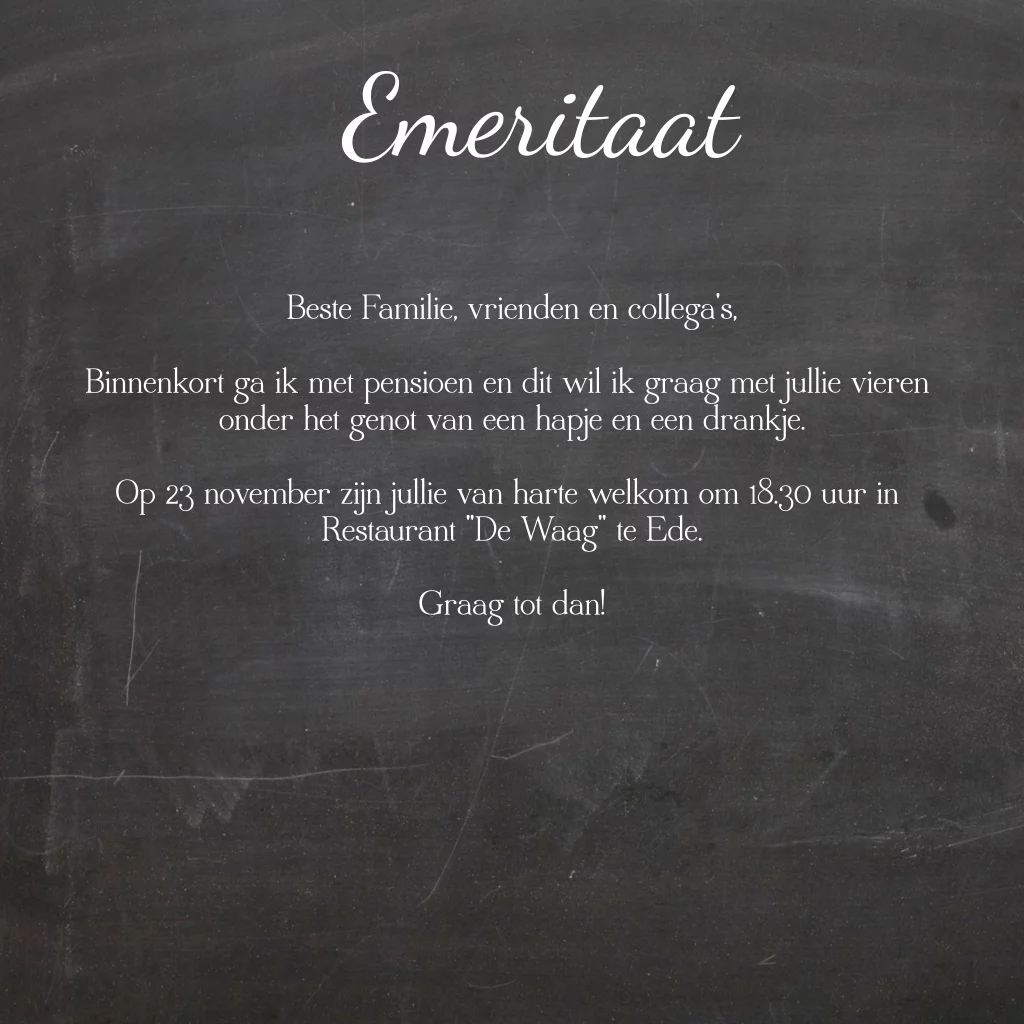 Emeritaat
Beste Familie, vrienden en collega's,
Binnenkort ga ik met pensioen en dit wil ik graag met jullie vieren
onder het genot van een hapje en een drankje.
Op 23 november zijn jullie van harte welkom om 18.30 uur in
Restaurant "De Waag" te Ede.
Graag tot dan!